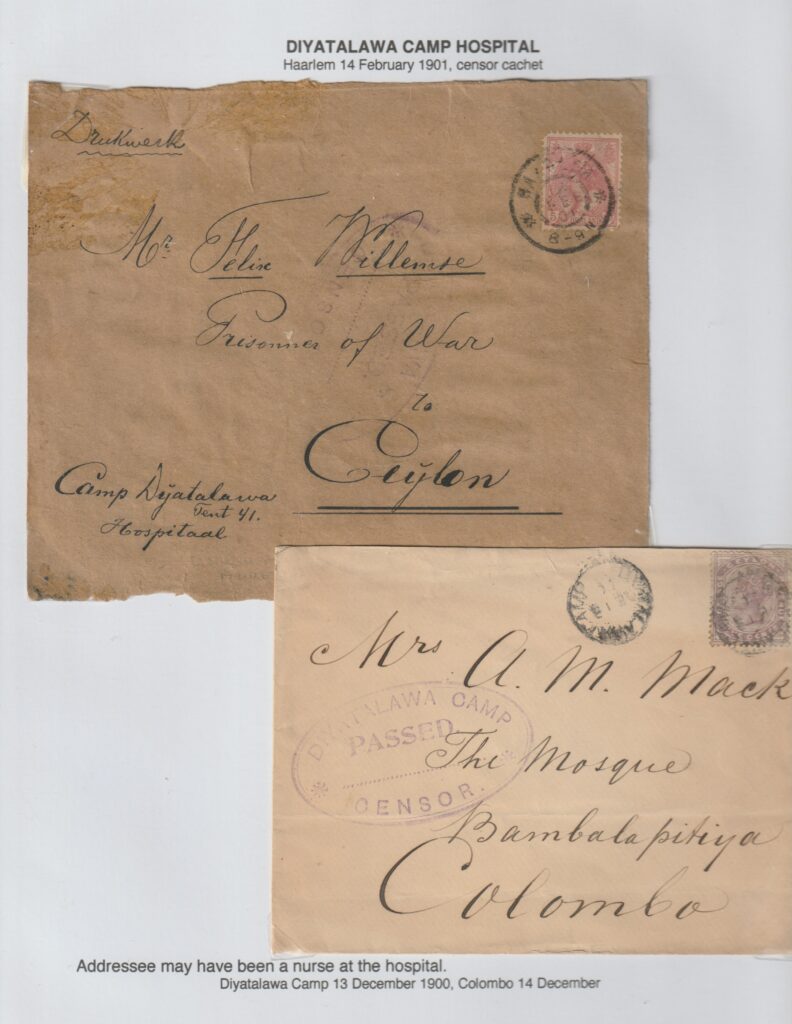 DIYATALAWA CAMP HOSPITAL
Haarlem 14 February 1901, censor cachet
Drukwerk
Mr. Felix Willemse
Prisonner of War
to
Ceÿlon
Camp Dÿatalawa
Tent 41.
Hospitaal
8-9N
Mrs A. M. Mack
The Mosque
Bambalapitiya
Colombo
DIYATALAWA CAMP
PASSED
CENSOR.
Addressee may have been a nurse at the hospital.
Diyatalawa Camp 13 December 1900, Colombo 14 December